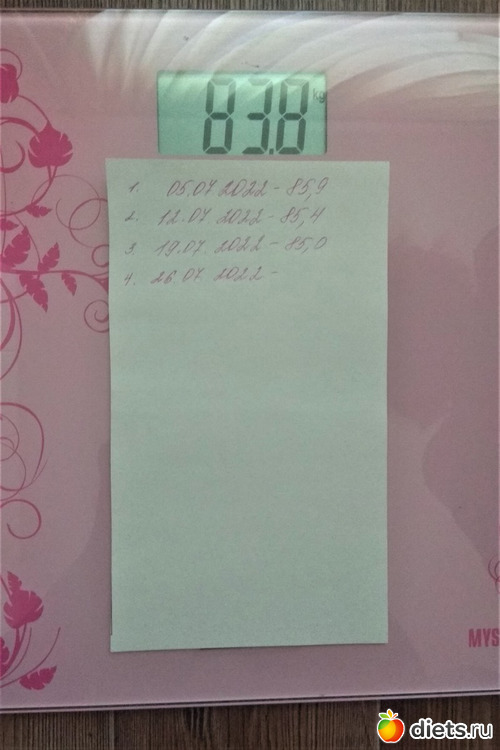 83.8
kg
1. 05.07.2022 - 85,9
2. 12.07.2022 - 85,4
3. 19.07.2022 - 85,0
4. 26.07.2022 -
MYS
diets.ru